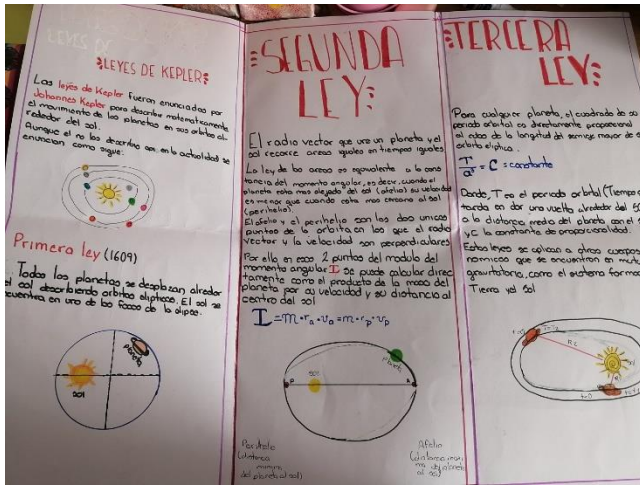 LEYES DE
LEYES DE KEPLER
Las leyes de Kepler fueron enunciadas por
Johannes Kepler para describir matematicamente
el movimiento de los planetas en sus orbitas al
rededor del sol.
Aunque el no las describio asi en la actualidad se
enuncian como sigue:
Primera ley (1609)
Todos los planetas se desplazan alredor
el sol describiendo orbitas elipticas. El sol se
cuentra en uno de los focos de la elipse.
sol
planeta
SEGUNDA
LEY
El radio vector que une un planeta y el
sol recorre areas iguales en tiempos iguales
La ley de las areas es equivalente a la cons
tancia del momento angular, es decir, cuando el
planeta esta mas alejado del sol (afelio) su velocidad
es menor que cuando esta mas cercano al sol
(perihelio).
El afelio y el perihelio son los dos unicos
puntos de la orbita en los que el radio
vector y la velocidad son perpendiculares
Por ello en esos 2 puntos del modulo del
momento angular I se puede calcular direc
tamente como el producto de la masa del
planeta por su velocidad y su distancia al
centro del sol
I = m • ra • va = m • rp • vp
sol
planeta
Perihelio
(distancia
minima
del planeta al sol)
Afelio
(distancia maxi
ma del planeta
al sol)
TERCERA
LEY
Para cualquier planeta, el cuadrado de su
periodo orbital es directamente proporcional
al cubo de la longitud del semieje mayor de su
orbita eliptica.
T²/a³ = C = constante
Donde, T es el periodo orbital (Tiempo
tarda en dar una vuelta alrededor del So
a la distancia media del planeta con el S
y C la constante de proporcionalidad.
Estas leyes se aplican a otros cuerpos
nomicos que se encuentran en mutua
gravitatoria, como el sistema formado
Tierra y el sol
sol
t=0